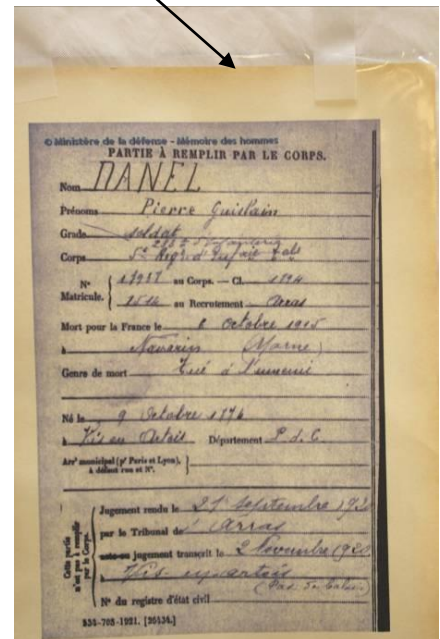 © Ministère de la défense - Mémoire des hommes
PARTIE À REMPLIR PAR LE CORPS.
Nom DANEL
Prénoms Pierre Guislain
Grade soldat
Corps
N° Matricule. { au Corps. — Cl. 1894
1514 au Recrutement Arras
Mort pour la France le 8 Octobre 1915
à Navarin (Marne)
Genre de mort Tué à l'ennemi
Né le 9 Octobre 1874
à Vis en Artois Département P. d. C.
Arrt municipal (pr Paris et Lyon), à défaut rue et N°. }
Cette partie n'est pas à remplir par le Corps.
Jugement rendu le septembre
par le Tribunal de Arras
jugement transcrit le 2 Novembre 1920
à Vis en artois
(Pas de Calais)
N° du registre d'état civil
534-708-1921. [26434.]